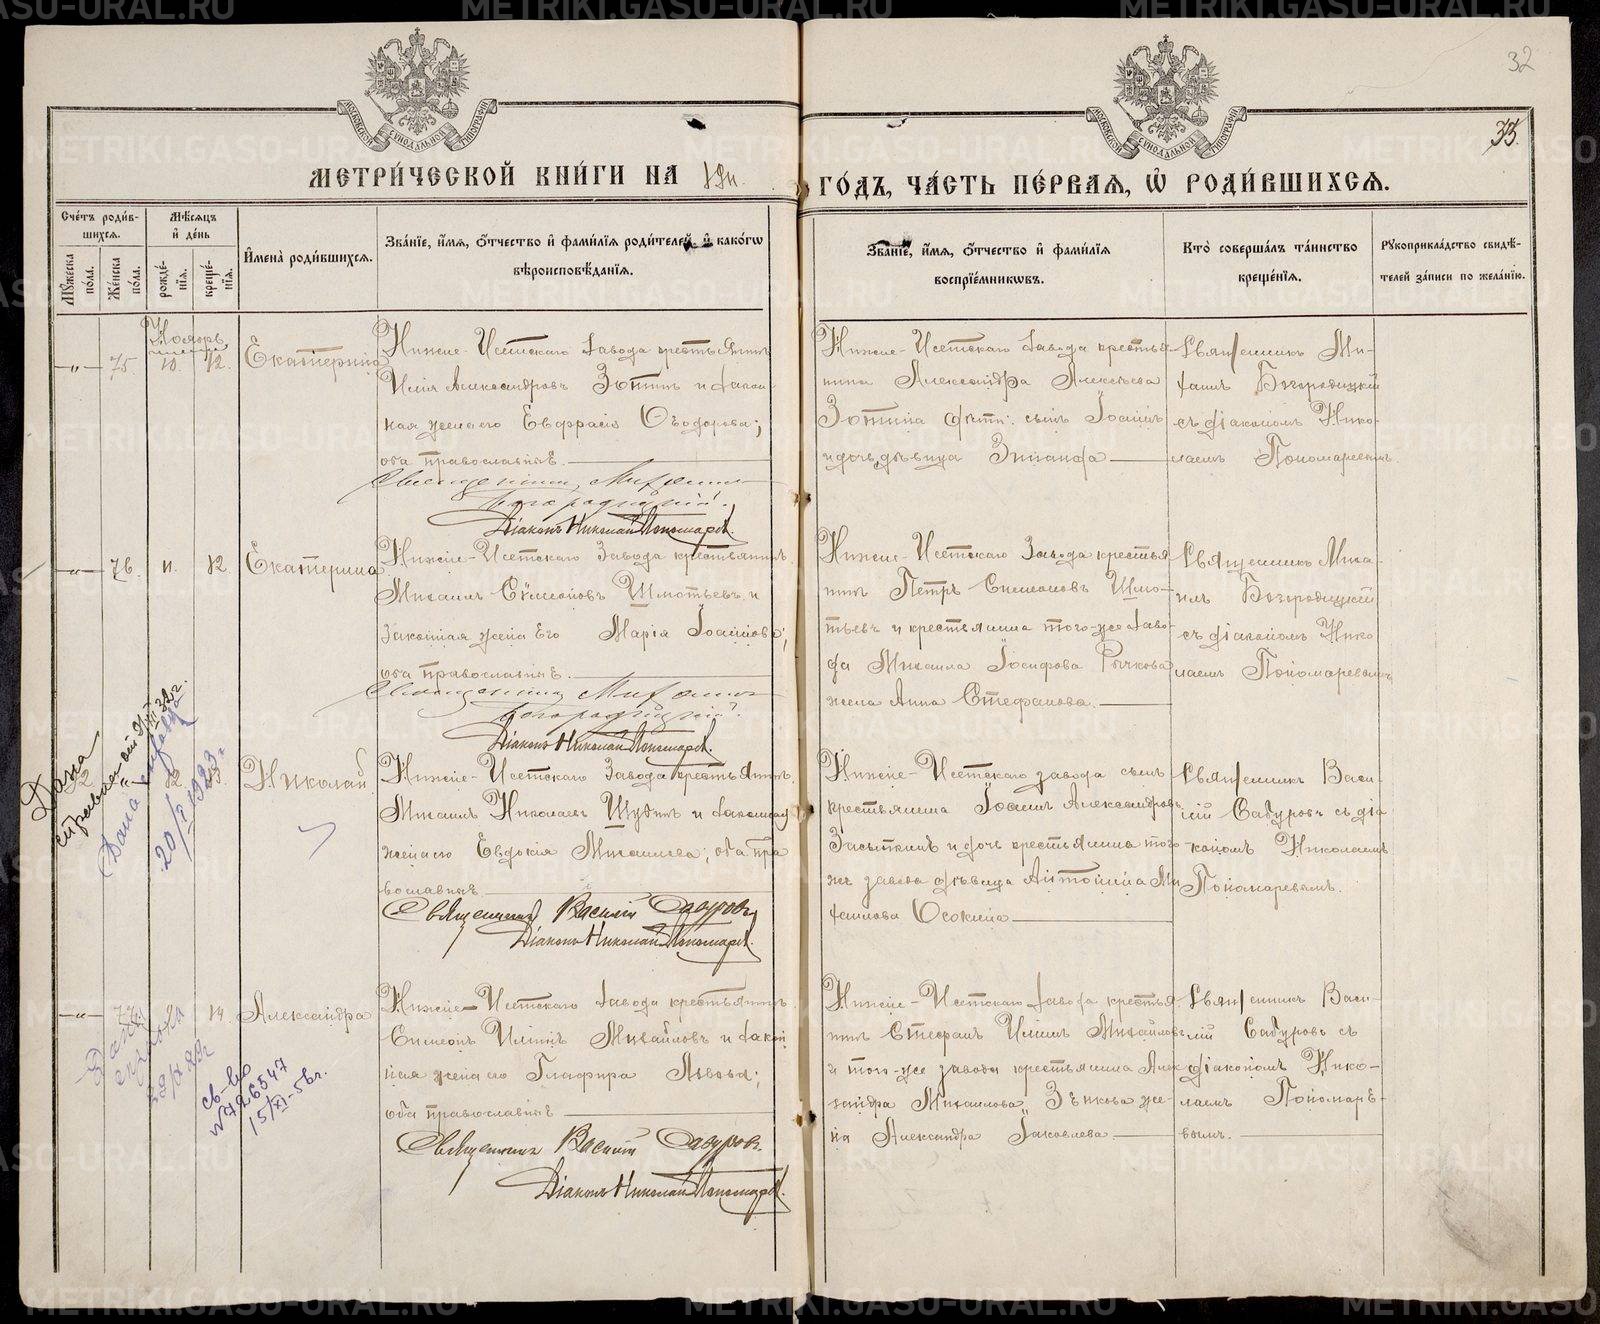 32
33.
МОСКОВСКОЙ СѴНОДАЛЬНОЙ ТИПОГРАФІИ
МОСКОВСКОЙ СѴНОДАЛЬНОЙ ТИПОГРАФІИ
МЕТРИ́ЧЕСКОЙ КНИ́ГИ НА 1911. ГО́ДЪ, ЧА́СТЬ ПЕ́РВАѦ, Ѽ РОДИ́ВШИХСѦ.
Сче́тъ роди́в-
шихсѧ.
Мѣ́сѧцъ
и҆ де́нь
Мꙋ́жеска
по́ла.
Же́нска
по́ла.
рожде́-
нїѧ.
креще́-
нїѧ.
И҆мена̀ роди́вшихсѧ.
Зва́нїе, и҆́мѧ, ѻ҆́тчество и҆ фами́лїѧ роди́телей, и҆ како́гѡ
вѣроисповѣ́данїѧ.
Зва́нїе, и҆́мѧ, ѻ҆́тчество и҆ фами́лїѧ
воспрїе́мникѡвъ.
Кто̀ соверша́лъ та́инство
креще́нїѧ.
Рꙋкоприкла́дство свидѣ́-
телей за́писи по жела́нїю.
Ноябрь
-„- 75 10. 12. Екатерина
Нижне-Исетскаго завода крестьянинъ
Илія Александровъ Зотинъ и закон-
ная жена его Евфрасія Ѳеодорова;
оба православные.
Священникъ Михаилъ
Богородицкій.
Діаконъ Николай Пономаревъ.
Нижне-Исетскаго завода крестья-
нина Александра Алексѣева
Зотина дѣти: сынъ Іоаннъ
и дочь, дѣвица Зинаида
Священникъ Ми-
хаилъ Богородицкій
съ діакономъ Нико-
лаемъ Пономаревымъ
-„- 76. 11. 12. Екатерина
Нижне-Исетскаго Завода крестьянинъ
Михаилъ Сѵмеоновъ Шмотьевъ и
законная жена его Марія Іоаннова;
оба православные.
Священникъ Михаилъ
Богородицкій.
Діаконъ Николай Пономаревъ.
Нижне-Исетскаго Завода крестья-
нинъ Петръ Симеоновъ Шмо-
тьевъ и крестьянина того-же заво-
да Михаила Іосифова Рычкова
жена Анна Стефанова.
Священникъ Миха-
илъ Богородицкій
съ діакономъ Нико-
лаемъ Пономаревымъ
Дана
Дана
20/ 1923 г
Николай
Нижне-Исетскаго Завода крестьянинъ
Михаилъ Николаевъ Шубинъ и законная
жена его Евдокія Михаилова; оба пра-
вославные
Священникъ Василій Сабуровъ
Діаконъ Николай Пономаревъ.
Нижне-Исетскаго завода сынъ
крестьянина Іоаннъ Александровъ
Засыпкинъ и дочь крестьянина того-
же завода дѣвица Антонина Ми-
хаилова Осокина
Священникъ Васи-
лій Сабуровъ съ діа-
кономъ Николаемъ
Пономаревымъ.
-„- 77 12 14. Александра
св-во
№726547
15/XI-56г.
Нижне-Исетскаго завода крестьянинъ
Симеонъ Илiинъ Михайловъ и закон-
ная жена его Глафира Львова;
оба православные
Священникъ Василій Сабуровъ.
Діаконъ Николай Пономаревъ.
Нижне-Исетскаго завода крестья-
нинъ Стефанъ Илiинъ Михайловъ
и того-же завода крестьянина Алек-
сандра Михаилова Зыкова же-
на Александра Іаковлева
Священникъ Васи-
лій Сабуровъ съ
діакономъ Нико-
лаемъ Пономаре-
вымъ.
METRIKI.GASO-URAL.RU